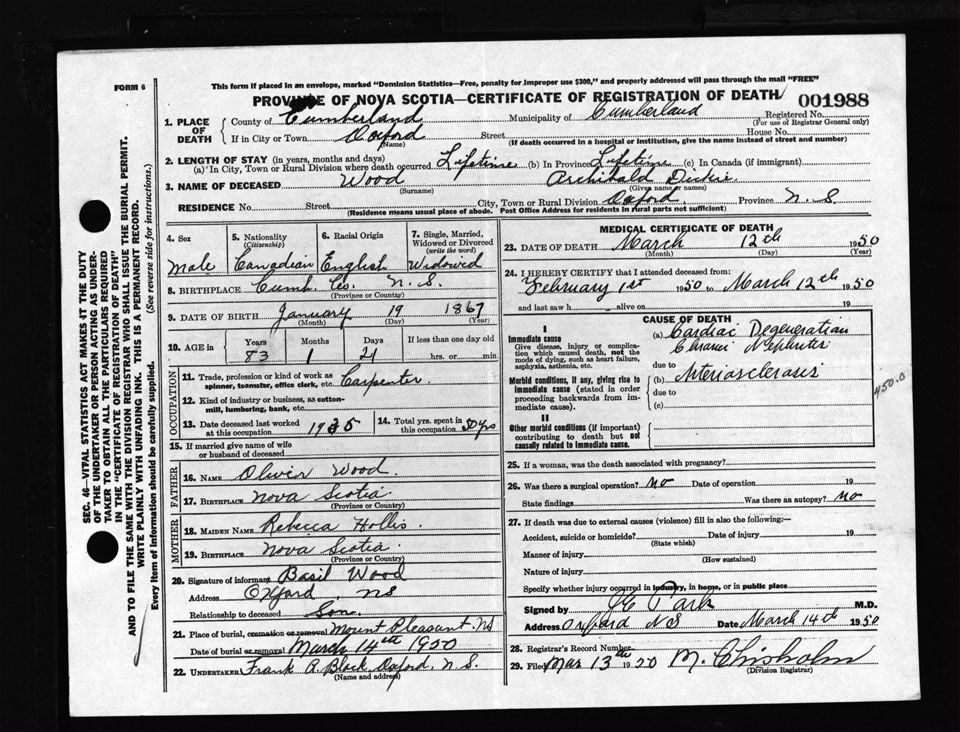 FORM 6
This form if placed in an envelope, marked "Dominion Statistics—Free, penalty for improper use $300," and properly addressed will pass through the mail "FREE"
PROVINCE OF NOVA SCOTIA—CERTIFICATE OF REGISTRATION OF DEATH
001988
1. PLACE OF DEATH
County of Cumberland Municipality of Cumberland Registered No.
(For use of Registrar General only)
If in City or Town Oxford Street House No.
(Name) (If death occurred in a hospital or institution, give the name instead of street and number)
2. LENGTH OF STAY (in years, months and days)
(a) In City, Town or Rural Division where death occurred Lifetime (b) In Province Lifetime (c) In Canada (if immigrant)
3. NAME OF DECEASED Wood Archibald Dickie
(Surname) (Given name or names)
RESIDENCE No. Street City, Town or Rural Division Oxford Province N.S.
(Residence means usual place of abode. Post Office Address for residents in rural parts not sufficient)
4. Sex
Male
5. Nationality
(Citizenship)
Canadian
6. Racial Origin
English
7. Single, Married, Widowed or Divorced
(write the word)
Widowed
8. BIRTHPLACE Cumb. Co. N.S.
(Province or Country)
9. DATE OF BIRTH January 19 1867
(Month) (Day) (Year)
10. AGE in Years Months Days If less than one day old
83 1 21 hrs. or min.
OCCUPATION
11. Trade, profession or kind of work as spinner, teamster, office clerk, etc. Carpenter
12. Kind of industry or business, as cotton-mill, lumbering, bank, etc.
13. Date deceased last worked at this occupation 1935
14. Total yrs. spent in this occupation 50 yrs
15. If married give name of wife or husband of deceased
FATHER
16. NAME Oliver Wood
17. BIRTHPLACE Nova Scotia
(Province or Country)
MOTHER
18. MAIDEN NAME Rebecca Hollis
19. BIRTHPLACE Nova Scotia
(Province or Country)
20. Signature of informant Basil Wood
Address Oxford, NS
Relationship to deceased Son
21. Place of burial, cremation or removal Mount Pleasant NS
Date of burial or removal March 14th 1950
22. UNDERTAKER Frank R. Black Oxford, N.S.
(Name and address)
MEDICAL CERTIFICATE OF DEATH
23. DATE OF DEATH March 12th 1950
(Month) (Day) (Year)
24. I HEREBY CERTIFY that I attended deceased from:
February 1st 1950 to March 12th 1950
and last saw h alive on 19
CAUSE OF DEATH
I
Immediate cause
Give disease, injury or complication which caused death, not the mode of dying, such as heart failure, asphyxia, asthenia, etc.
(a) Cardiac Degeneration
Chronic Nephritis
due to
Morbid conditions, if any, giving rise to immediate cause (stated in order proceeding backwards from immediate cause).
(b) Arteriosclerosis
due to
(c)
450.0
II
Other morbid conditions (if important) contributing to death but not causally related to immediate cause.
25. If a woman, was the death associated with pregnancy?
26. Was there a surgical operation? no Date of operation 19
State findings Was there an autopsy? no
27. If death was due to external causes (violence) fill in also the following:—
Accident, suicide or homicide? Date of injury 19
(State which)
Manner of injury
(How sustained)
Nature of injury
Specify whether injury occurred in industry, in home, or in public place
Signed by Park M.D.
Address Oxford NS Date March 14th 1950
28. Registrar's Record Number
29. Filed Mar 13th 1950 M. Chisholm
(Division Registrar)
SEC. 46—VITAL STATISTICS ACT MAKES IT THE DUTY OF THE UNDERTAKER OR PERSON ACTING AS UNDERTAKER TO OBTAIN ALL THE PARTICULARS REQUIRED IN THE "CERTIFICATE OF REGISTRATION OF DEATH" AND TO FILE THE SAME WITH THE DIVISION REGISTRAR WHO SHALL ISSUE THE BURIAL PERMIT.
WRITE PLAINLY WITH UNFADING INK. THIS IS A PERMANENT RECORD.
Every item of Information should be carefully supplied. (See reverse side for instructions.)